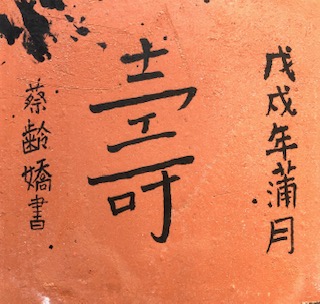 戊戌年蒲月
壽
蔡齡嬌書